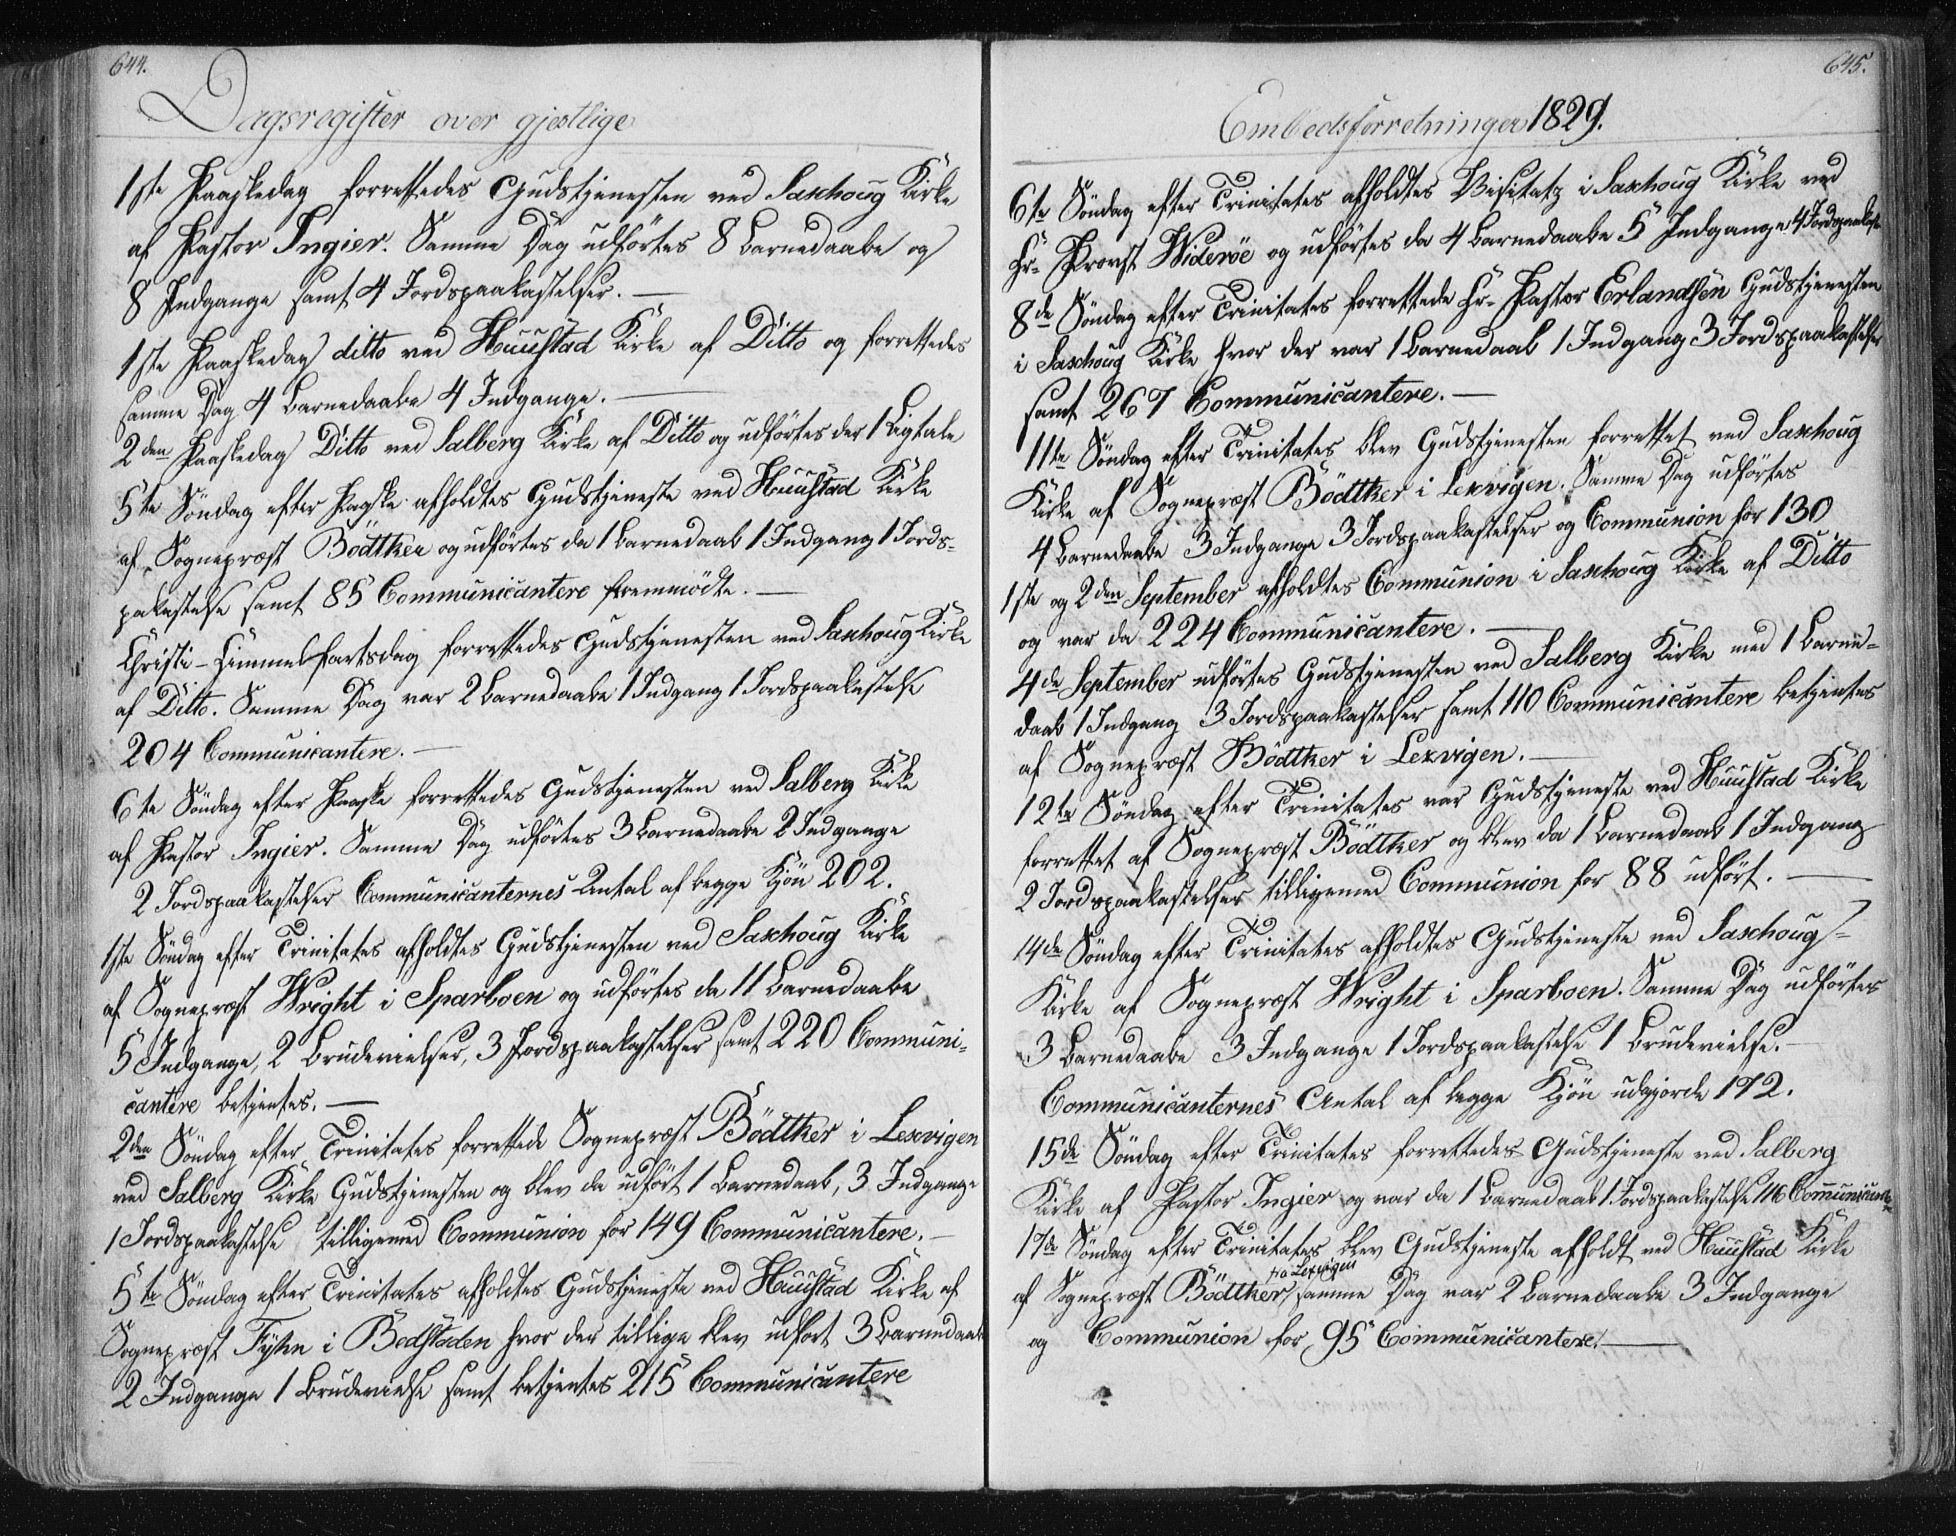 644.
Dagsregister over gjestlige
1ste Paaskedag forrettedes Gudstjenesten ved Saxhoug Kirke
af Pastor Ingier. Samme Dag udførtes 8 Barnedaabe og
8 Indgange samt 4 Jordspaakastelser. —
1ste Paaskedag ditto ved Huustad Kirke af Ditto og forrettedes
samme Dag 4 Barnedaabe 4 Indgange. —
2den Paaskedag Ditto ved Salberg Kirke af Ditto og udførtes der 1 Ligtale
5te Søndag efter Paaske afholdtes Gudstjeneste ved Huustad Kirke
af Sognepræst Bödtker og udførtes da 1 Barnedaab 1 Indgang 1 Jords-
pakastelse samt 85 Communicantere fremmödte. —
Christi-Himmelfartsdag forrettedes Gudstjenesten ved Saxhoug Kirke
af Ditto. Samme Dag var 2 Barnedaabe 1 Indgang 1 Jordspaakastelse
204 Communicantere. —
6te Søndag efter Paaske forrettedes Gudstjenesten ved Salberg Kirke
af Pastor Ingier. Samme Dag udførtes 3 Barnedaabe 2 Indgange
2 Jordspaakastelser Communicanternes Antal af begge Kjön 202.
1ste Søndag efter Trinitates afholdtes Gudstjenesten ved Saxhoug Kirke
af Sognepræst Wright i Sparboen og udførtes da 11 Barnedaabe
5 Indgange, 2 Brudevielser, 3 Jordspaakastelser samt 220 Communi-
cantere betjentes. —
2den Søndag efter Trinitates forrettede Sognepræst Bödtker i Lexvigen
ved Salberg Kirke Gudstjenesten og blev da udført 1 Barnedaab, 3 Indgange
1 Jordspaakastelse tilligemed Communion for 149 Communicantere. —
5te Søndag efter Trinitates afholdtes Gudstjeneste ved Huustad Kirke af
Sognepræst Fyhn i Bedstaden hvor der tillige blev udført 3 Barnedaabe
2 Indgange 1 Brudevielse samt betjentes 215 Communicantere
645.
Embedsforretninger 1829.
6te Søndag efter Trinitates afholdtes Visitatz i Saxhoug Kirke ved
Hr. Provst Wideröe og udførtes da 4 Barnedaabe 5 Indgange 4 Jordspaakast
8de Søndag efter Trinitates forrettede Hr. Pastor Erlandsen Gudstjenesten
i Saxhoug Kirke hvor der var 1 Barnedaab 1 Indgang 3 Jordspaakastelser
samt 267 Communicantere. —
11te Søndag efter Trinitates blev Gudstjenesten forrettet ved Saxhoug
Kirke af Sognepræst Bödtker i Lexvigen. Samme Dag udførtes
4 Barnedaabe 3 Indgange 3 Jordspaakastelser og Communion for 130
1ste og 2den September afholdtes Communion i Saxhoug Kirke af Ditto
og var da 224 Communicantere. —
4de September udførtes Gudstjenesten ved Salberg Kirke med 1 Barne-
daab 1 Indgang 3 Jordspaakastelser samt 110 Communicantere betjentes
af Sognepræst Bödtker i Lexvigen. —
12te Søndag efter Trinitates var Gudstjeneste ved Huustad Kirke
forrettet af Sognepræst Bödtker og blev da 1 Barnedaab 1 Indgang
2 Jordspaakastelser tilligemed Communion for 88 udført. —
14de Søndag efter Trinitates afholdtes Gudstjeneste ved Saxhoug-
Kirke af Sognepræst Wright i Sparboen. Samme Dag udførtes
3 Barnedaabe 3 Indgange 1 Jordspaakastelse 1 Brudevielse. —
Communicanternes Antal af begge Kjön udgjorde 172.
15de Søndag efter Trinitates forrettedes Gudstjeneste ved Salberg
Kirke af Pastor Ingier og var da 1 Barnedaab 1 Jordspaakastelse 116 Communicante
17de Søndag efter Trinitates blev Gudstjeneste afholdt ved Huustad Kirke
fra Lexvigen
af Sognepræst Bödtker samme Dag var 2 Barnedaabe 3 Indgange
og Communion for 95 Communicantere. —